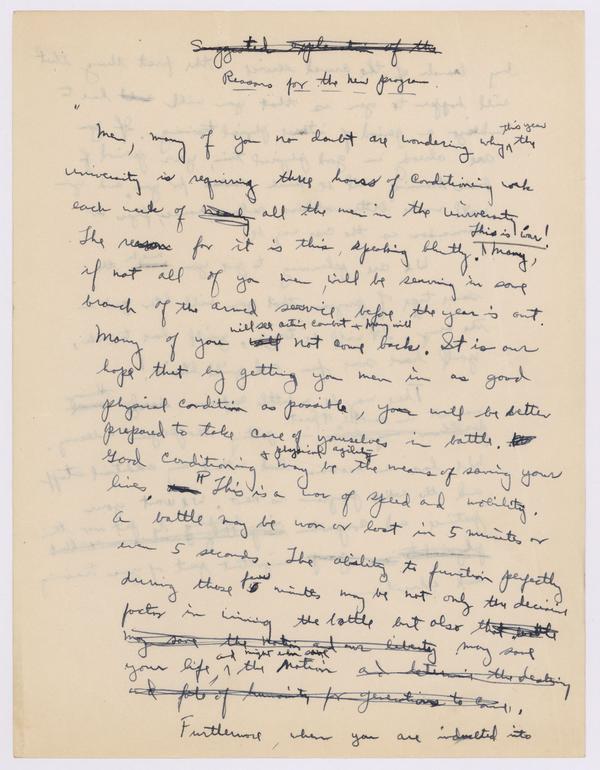 Suggested explanation of the
Reasons for the new program.
"
Men, many of you no doubt are wondering why this year the
university is requiring three hours of conditioning work
each week of nearly all the men in the university.
The reason for it is this, speaking bluntly. This is war! Many,
if not all of you men, will be serving in some
branch of the armed service before the year is out.
Many of you will see active combat & many will will not come back. It is our
hope that by getting you men in as good
physical condition as possible, you will be better
prepared to take care of yourselves in battle.
Good conditioning & physical agility may be the means of saving your
lives. ¶ This is a war of speed and mobility.
A battle may be won or lost in 5 minutes or
even 5 seconds. The ability to function perfectly
during those few 5 minutes may be not only the decisive
factor in winning the battle but also that battle
may save the nation and our liberty may save
your life, and might even save the Nation and determine the destiny
and fate of humanity for generations to come.
Furthermore, when you are inducted into